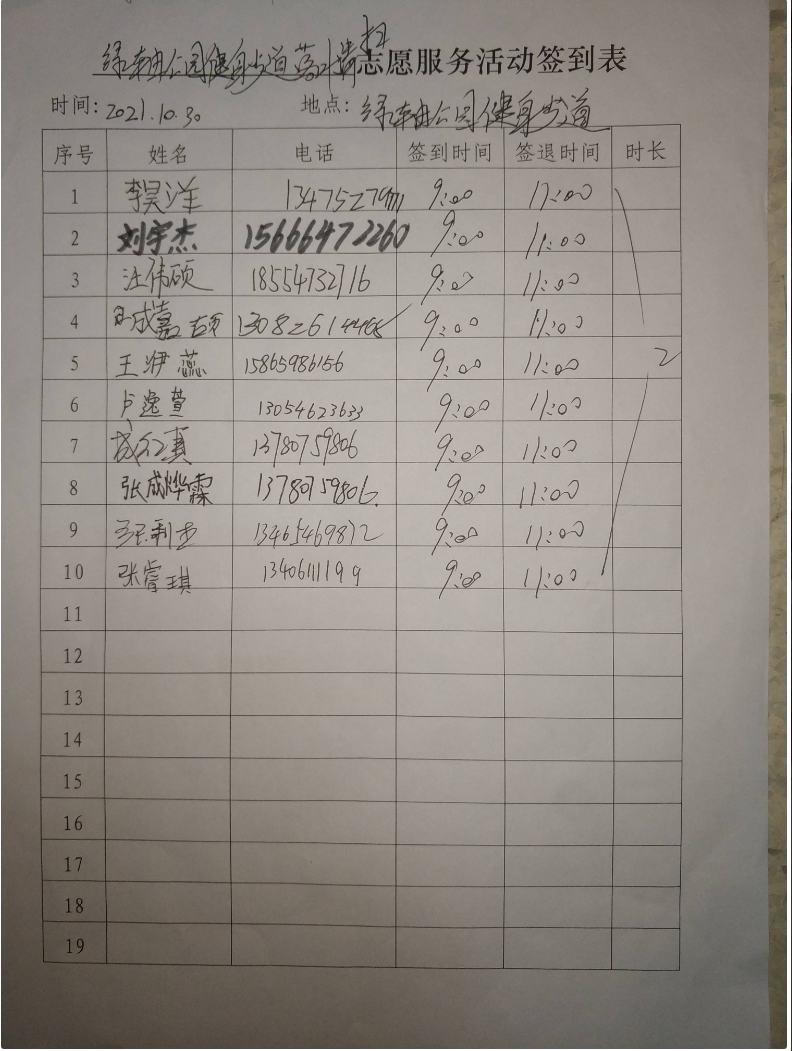 绿轴公园健身步道落叶清扫志愿服务活动签到表
时间: 2021.10.30 地点: 绿轴公园健身步道
序号 姓名 电话 签到时间 签退时间 时长
1 李昊洋 9:00 11:00
2 刘宇杰 15666472260 9:00 11:00
3 汪伟硕 18554732716 9:00 11:00
4 9:00 11:00
5 王伊蕊 15865986156 9:00 11:00 2
6 卢逸萱 13054623633 9:00 11:00
7 13780759806 9:00 11:00
8 张成烨霖 13780759806 9:00 11:00
9 13465469872 9:00 11:00
10 张睿琪 13406111199 9:00 11:00
11
12
13
14
15
16
17
18
19